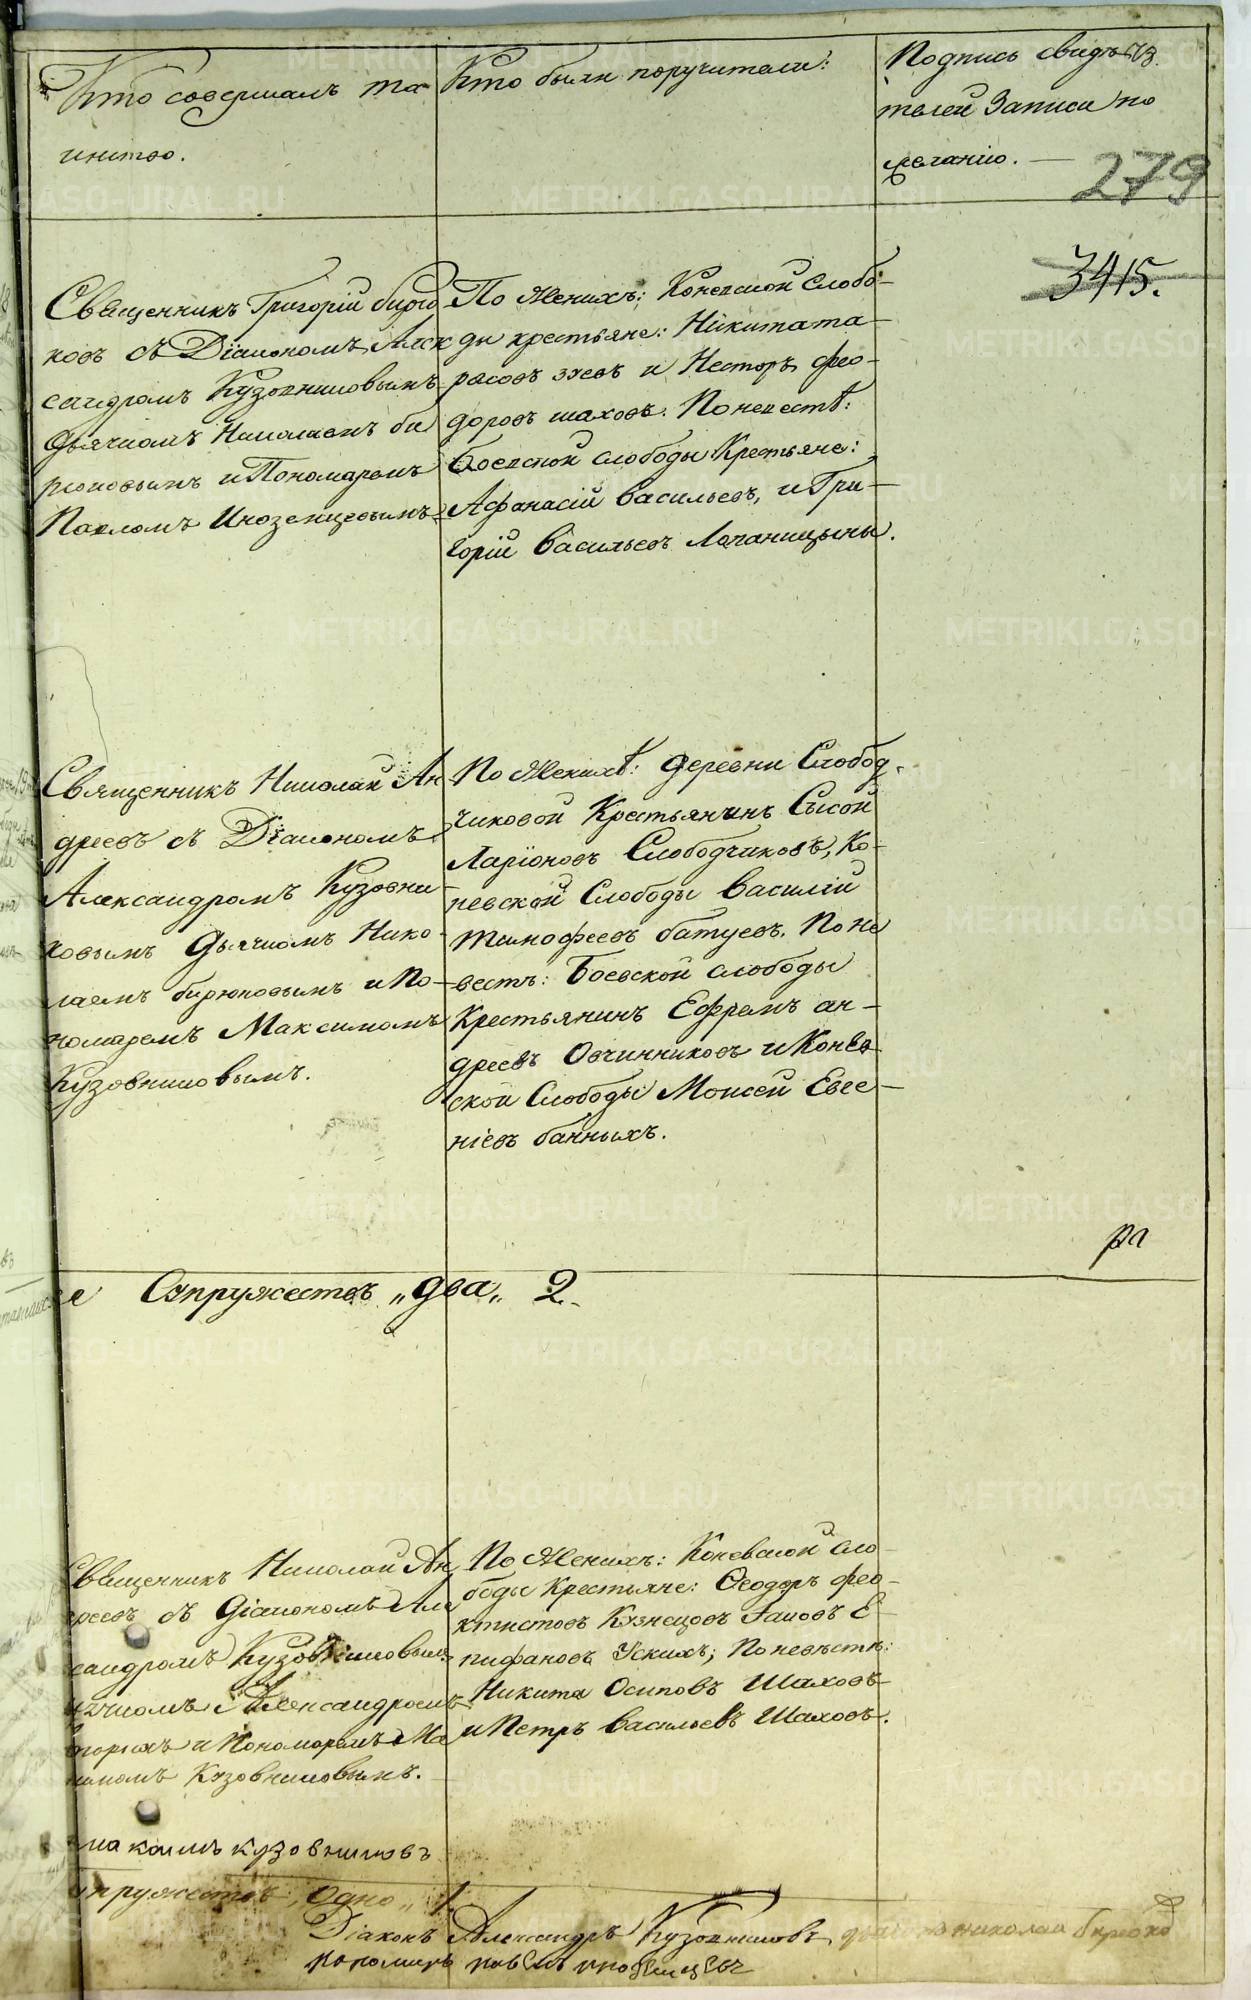 Кто совершалъ та-
инство.
Кто были поручители:
Подпись свидѣ-
телей Записи по
желанію. —
279
3415.
Священникъ Григорій бирю
ковъ съ Діакономъ Алек
сандромъ Кузовниковымъ
Дьячкомъ Николаемъ би
рюковымъ и Пономаремъ
Павломъ Иноземцевымъ
По Женихѣ: Коневской слобо-
ды крестьяне: Никита та-
расовъ зуевъ и Несторъ фео-
доровъ шаховъ. По невестѣ:
Боевской слободы Крестьяне:
Афанасій васильевъ, и Гри-
горій васильевъ Лачаницыны.
Священникъ Николай Ан
дреевъ съ Діакономъ
Александромъ Кузовни-
ковымъ Дьячкомъ Нико-
лаемъ бирюковымъ и По-
номаремъ Максимомъ
Кузовниковымъ.
По Женихѣ: деревни Слобод-
чиковой Крестьянинъ Сысой
Ларіоновъ Слободчиковъ, Ко-
невской Слободы василій
тимофеевъ батуевъ. По не
вестѣ: Боевской слободы
Крестьянинъ Ефремъ ан-
дреевъ Овчинниковъ и Конев
ской Слободы Моисей Евге-
ніевъ банныхъ.
ра
Супружествъ „два„ 2.
Священникъ Николай Ан
дреевъ съ Діакономъ Але
сандромъ Кузовниковымъ
Дьячкомъ Александромъ
и Пономаремъ Ма
симомъ Кузовниковымъ.
По Женихѣ: Коневской сло-
боды Крестьяне: Ѳеодоръ фео-
ктистовъ Кузнецовъ Iаковъ Е-
пифановъ Ускихъ; По невѣстѣ:
Никита Осиповъ Шаховъ
и Петръ васильевъ Шаховъ.
кузовниковъ
упружествъ „Одно„ 1.
Діаконъ Александръ Кузовниковъ, дьячокъ николай бирюко
пономарь павелъ иноземцевъ
METRIKI.GASO-URAL.RU